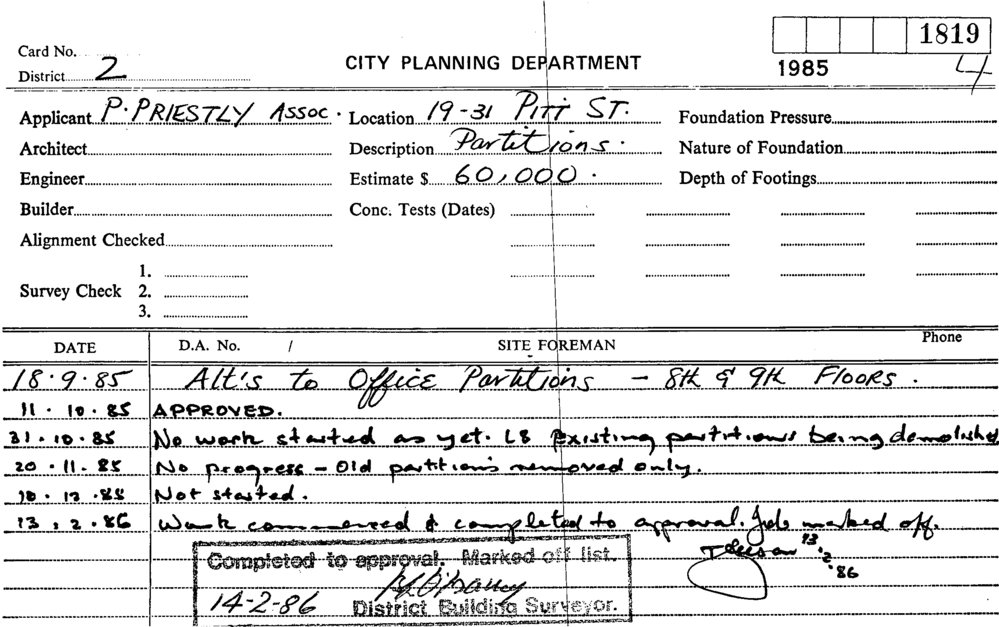 1819
Card No.
District 2
CITY PLANNING DEPARTMENT
1985
4
Applicant P. PRIESTLY ASSOC.
Location 19-31 PITT ST.
Foundation Pressure
Architect
Description Partitions.
Nature of Foundation
Engineer
Estimate $ 60,000.
Depth of Footings
Builder
Conc. Tests (Dates)
Alignment Checked
1.
Survey Check 2.
3.
DATE D.A. No. / SITE FOREMAN Phone
18.9.85 Alt's to Office Partitions - 8th & 9th Floors.
11.10.85 APPROVED.
31.10.85 No work started as yet. L8 Existing partitions being demolished
20.11.85 No progress - Old partitions removed only.
12.85 Not started.
13.2.86 Work commenced & completed to approval. Job marked off.
13.2.86
Completed to approval. Marked off list.
14-2-86 District Building Surveyor.